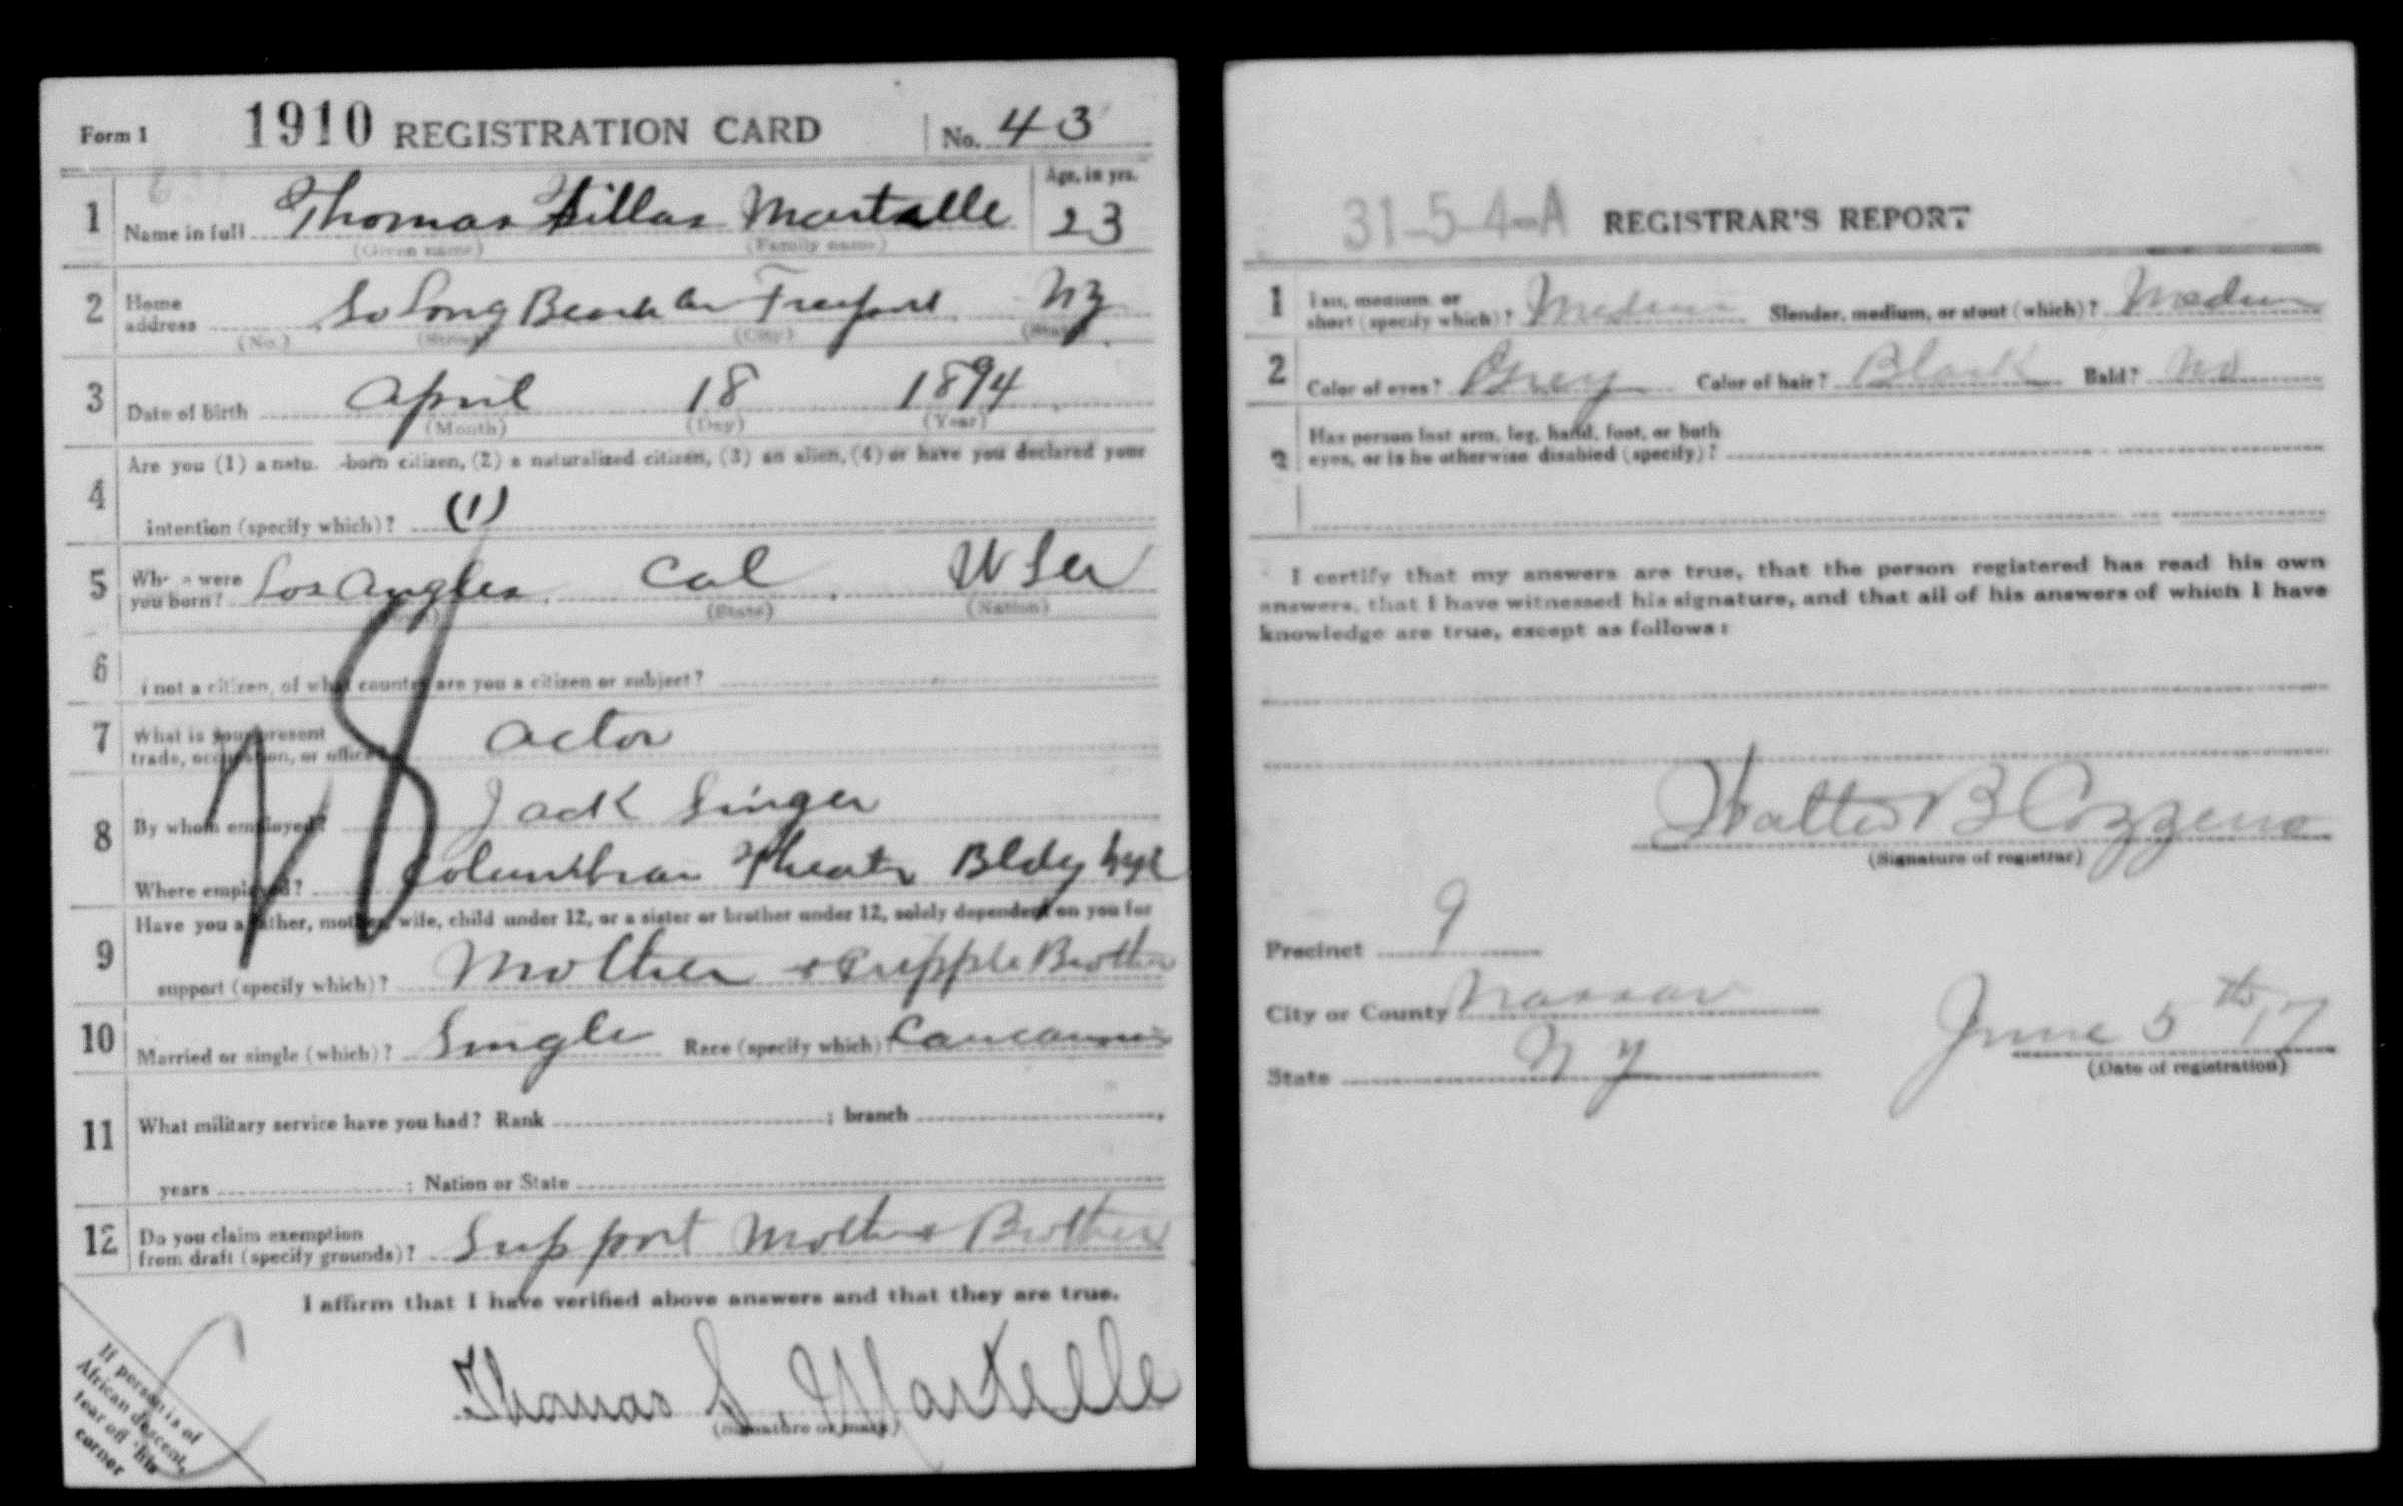 Form 1 1910 REGISTRATION CARD No. 43
1 Name in full Thomas Martelle Age, in yrs. 23
(Given name) (Family name)
2 Home address So Long Beach Av Freeport NY
(No.) (Street) (City) (State)
3 Date of birth April 18 1894
(Month) (Day) (Year)
4 Are you (1) a natu. -born citizen, (2) a naturalized citizen, (3) an alien, (4) or have you declared your
intention (specify which)? (1)
5 Where were you born? Los Angles Cal
(State) (Nation)
6 if not a citizen, of what country are you a citizen or subject?
7 What is your present trade, occupation, or office? actor
8 By whom employed? Jack Singer
Where employed? Theatr Bldg
9 Have you a father, mother, wife, child under 12, or a sister or brother under 12, solely dependent on you for
support (specify which)? Mother + Cripple Brother
10 Married or single (which)? Single Race (specify which)? Caucasian
11 What military service have you had? Rank ; branch
years ; Nation or State
12 Do you claim exemption from draft (specify grounds)? Support Mother + Brother
I affirm that I have verified above answers and that they are true.
Thomas S. Martelle
(Signature or mark)
If person is of African descent, tear off this corner
18
31-5-4-A REGISTRAR'S REPORT
1 Tall, medium, or short (specify which)? Medium Slender, medium, or stout (which)? Medium
2 Color of eyes? Grey Color of hair? Black Bald? No
3 Has person lost arm, leg, hand, foot, or both eyes, or is he otherwise disabled (specify)?
I certify that my answers are true, that the person registered has read his own
answers, that I have witnessed his signature, and that all of his answers of which I have
knowledge are true, except as follows:
Walter B Cozzens
(Signature of registrar)
Precinct 9
City or County Nassau
State NY
June 5th 17
(Date of registration)